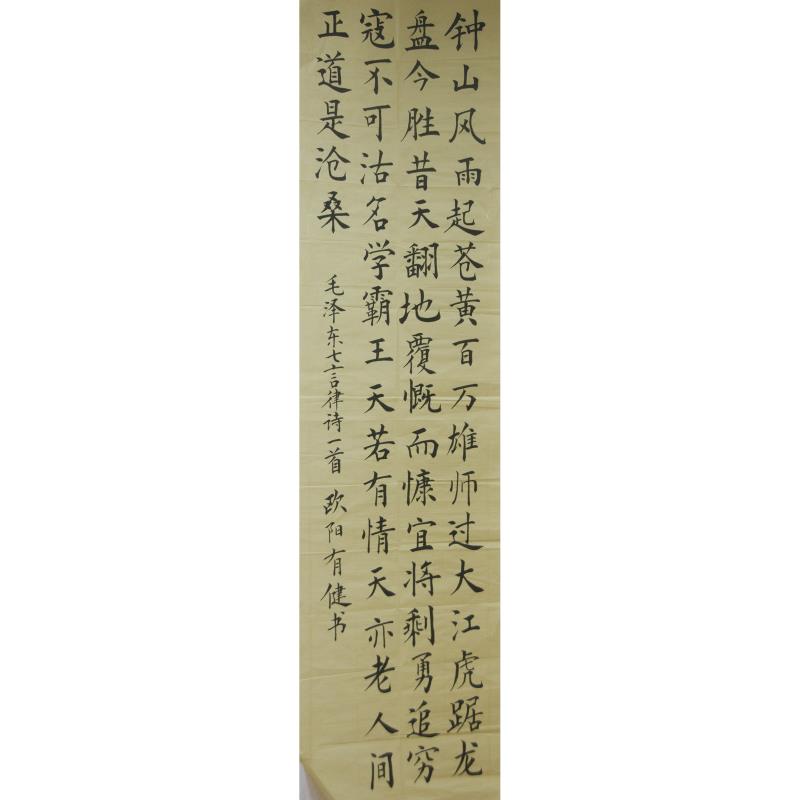 钟山风雨起苍黄百万雄师过大江虎踞龙
盘今胜昔天翻地覆慨而慷宜将剩勇追穷
寇不可沽名学霸王天若有情天亦老人间
正道是沧桑
毛泽东七言律诗一首 欧阳有健书